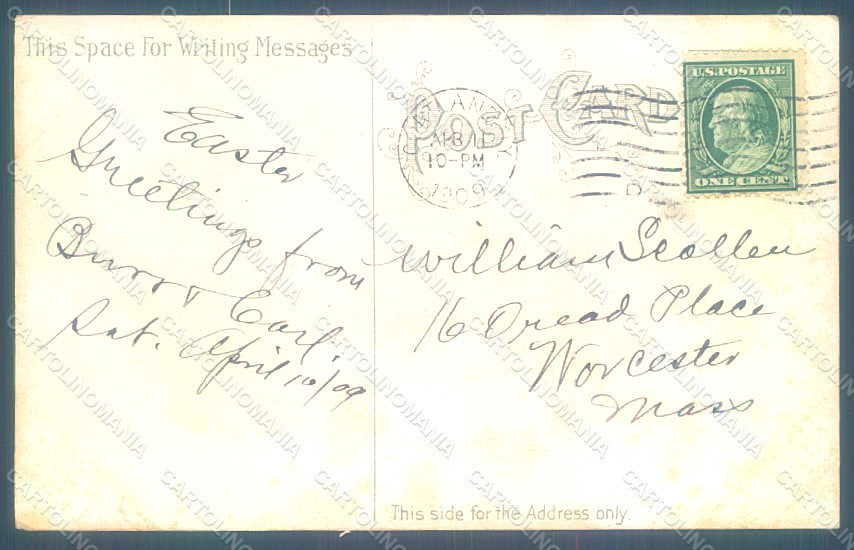 This Space For Writing Messages
POST CARD
ALBANY
10-PM
1909
N.Y.
U.S. POSTAGE
ONE CENT
Easter
Greetings from
Burr & Earl.
Sat. April 10/09
William Scollen
16 Oread Place
Worcester
Mass
This side for the Address only.
CARTOLINOMANIA